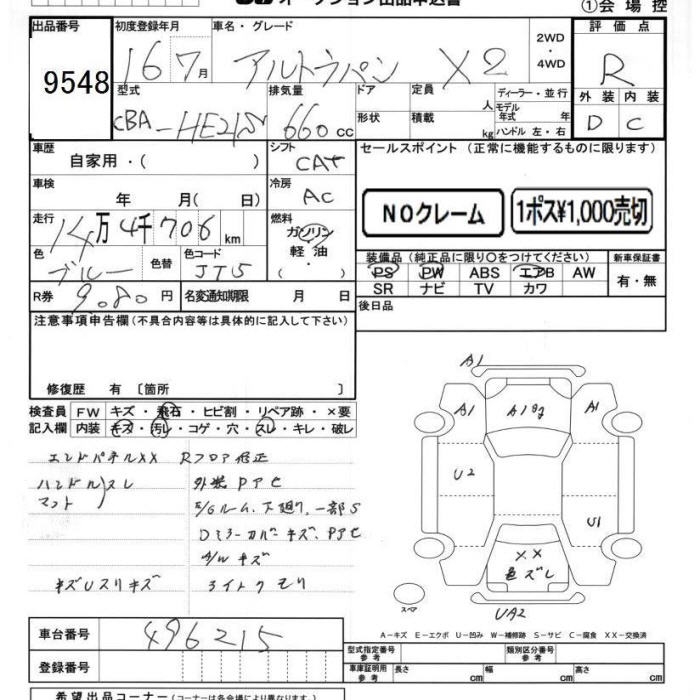 オークション出品申込書
①会場控
出品番号 初度登録年月 車名・グレード 2WD・4WD 評価点
9548 16 7月 アルトラパン X2 R
型式 排気量 ドア 定員 人 ディーラー・並行
CBA-HE21S 660cc 形状 積載 kg モデル年式 年 ハンドル 左・右
外装 内装
D C
車歴 自家用・( ) シフト CAT
セールスポイント(正常に機能するものに限ります)
車検 年 月( 日) 冷房 AC
NOクレーム 1ポス¥1,000売切
走行 14万4千706km 燃料 ガソリン・軽油・( )
色 ブルー 色替 色コード JT5
装備品(純正品に限り○をつけてください) 新車保証書
PS PW ABS エアB AW 有・無
SR ナビ TV カワ
R券 9,080円 名変通知期限 月 日
後日品
注意事項申告欄(不具合内容等は具体的に記入して下さい)
修復歴 有〔箇所 〕
検査員 FW キズ・飛石・ヒビ割・リペア跡・×要
記入欄 内装 キズ・汚レ・コゲ・穴・スレ・キレ・破レ
エンドパネルXX Rフロア修正
ハンドルスレ 外装Pアセ
マット E/Gルーム、下廻り、一部S
Dミラーカバーキズ、Pアセ
A/Wキズ
キズUスリキズ ライトクモリ
A1
A1 A1 A1
U2
U1
XX
色ズレ
スペア
UA2
A-キズ E-エクボ U-凹み W-補修跡 S-サビ C-腐食 XX-交換済
車台番号 496215
型式指定番号 参考 類別区分番号 参考
登録番号
車庫証明用 参考 長さ cm 幅 cm 高さ cm
希望出品コーナー(コーナーは各会場により異なります)